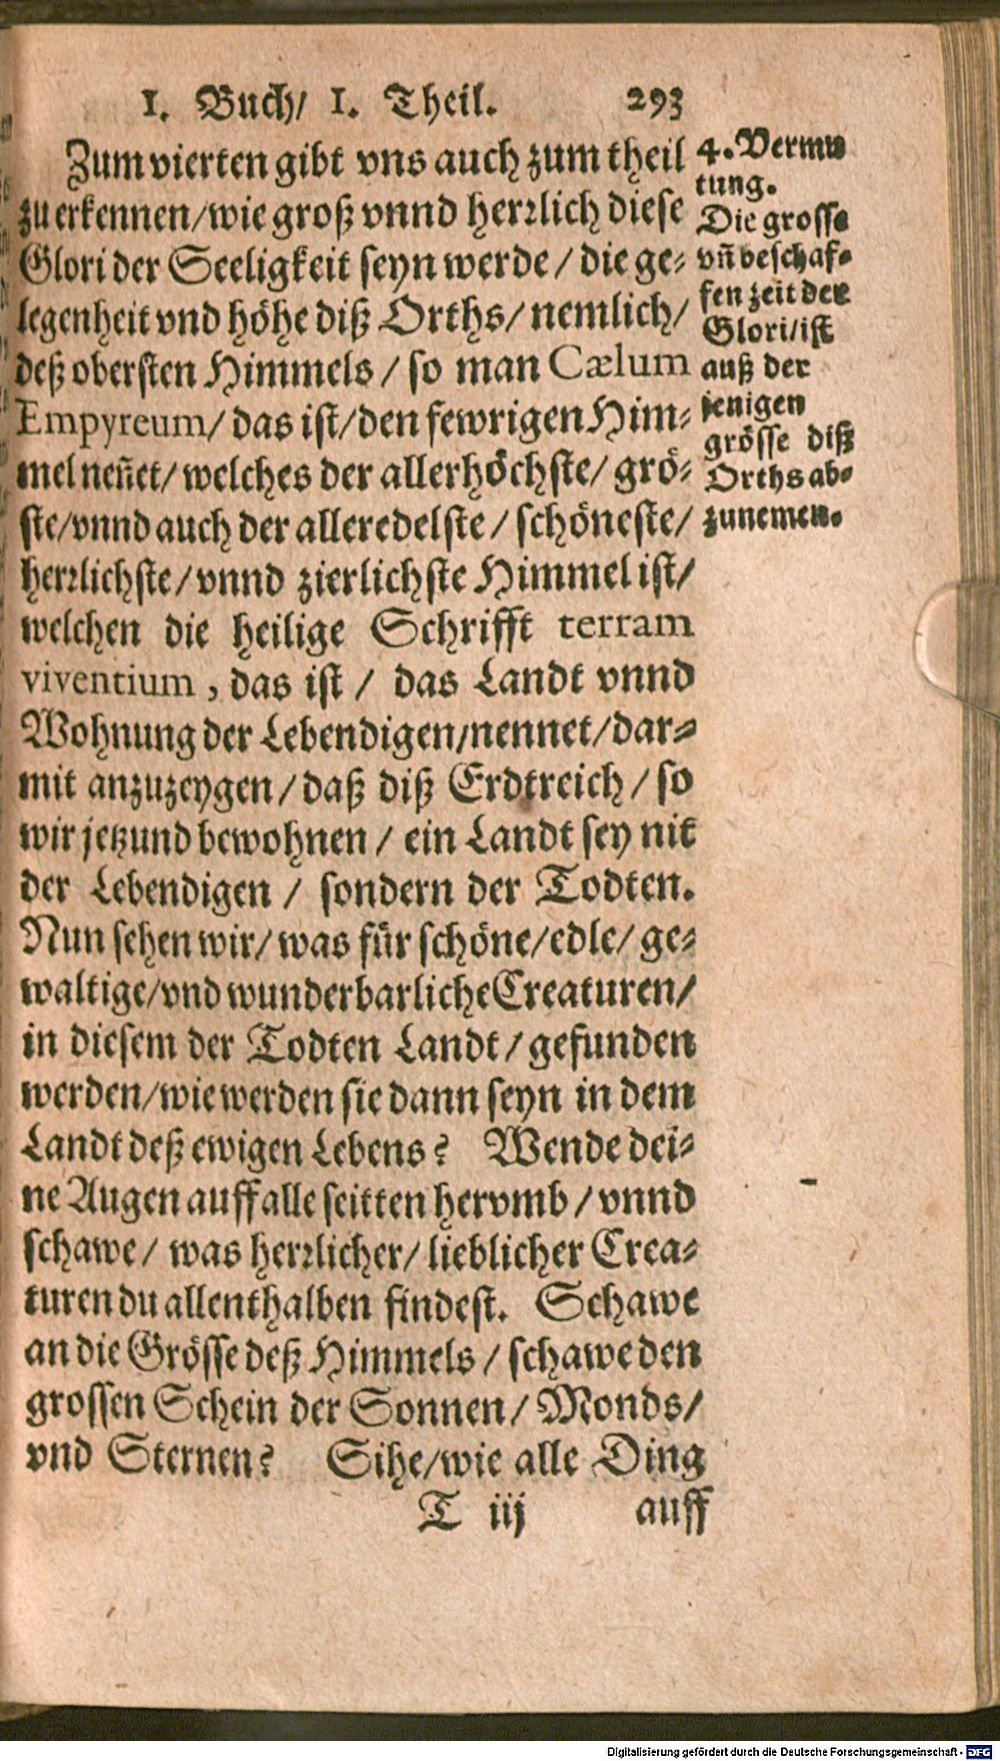 1. Buch/ 1. Theil. 293
Zum vierten gibt vns auch zum theil
zu erkennen/wie groß vnnd herꝛlich diese
Glori der Seeligkeit seyn werde/ die ge-
legenheit vnd höhe diß Orths/ nemlich/
deß obersten Himmels/ so man Cælum
Empyreum/ das ist/den fewrigen Him-
mel neñet/ welches der allerhöchste/ grö-
ste/vnnd auch der alleredelste/ schöneste/
herꝛlichste/ vnnd zierlichste Himmel ist/
welchen die heilige Schrifft terram
viventium, das ist/ das Landt vnnd
Wohnung der Lebendigen/nennet/dar-
mit anzuzeygen/ daß diß Erdtreich/ so
wir jetzund bewohnen/ ein Landt sey nit
der Lebendigen/ sondern der Todten.
Nun sehen wir/ was für schöne/edle/ ge-
waltige/vnd wunderbarliche Creaturen/
in diesem der Todten Landt/ gefunden
werden/wie werden sie dann seyn in dem
Landt deß ewigen Lebens? Wende dei-
ne Augen auff alle seitten hervmb/ vnnd
schawe/ was herꝛlicher/ lieblicher Crea-
turen du allenthalben findest. Schawe
an die Grösse deß Himmels/ schawe den
grossen Schein der Sonnen/ Monds/
vnd Sternen? Sihe/wie alle Ding
T iij auff
4. Vermu
tung.
Die grosse
vñ beschaf-
fen zeit der
Glori/ist
auß der
jenigen
grösse diß
Orths ab-
zunemen.
Digitalisierung gefördert durch die Deutsche Forschungsgemeinschaft - DFG